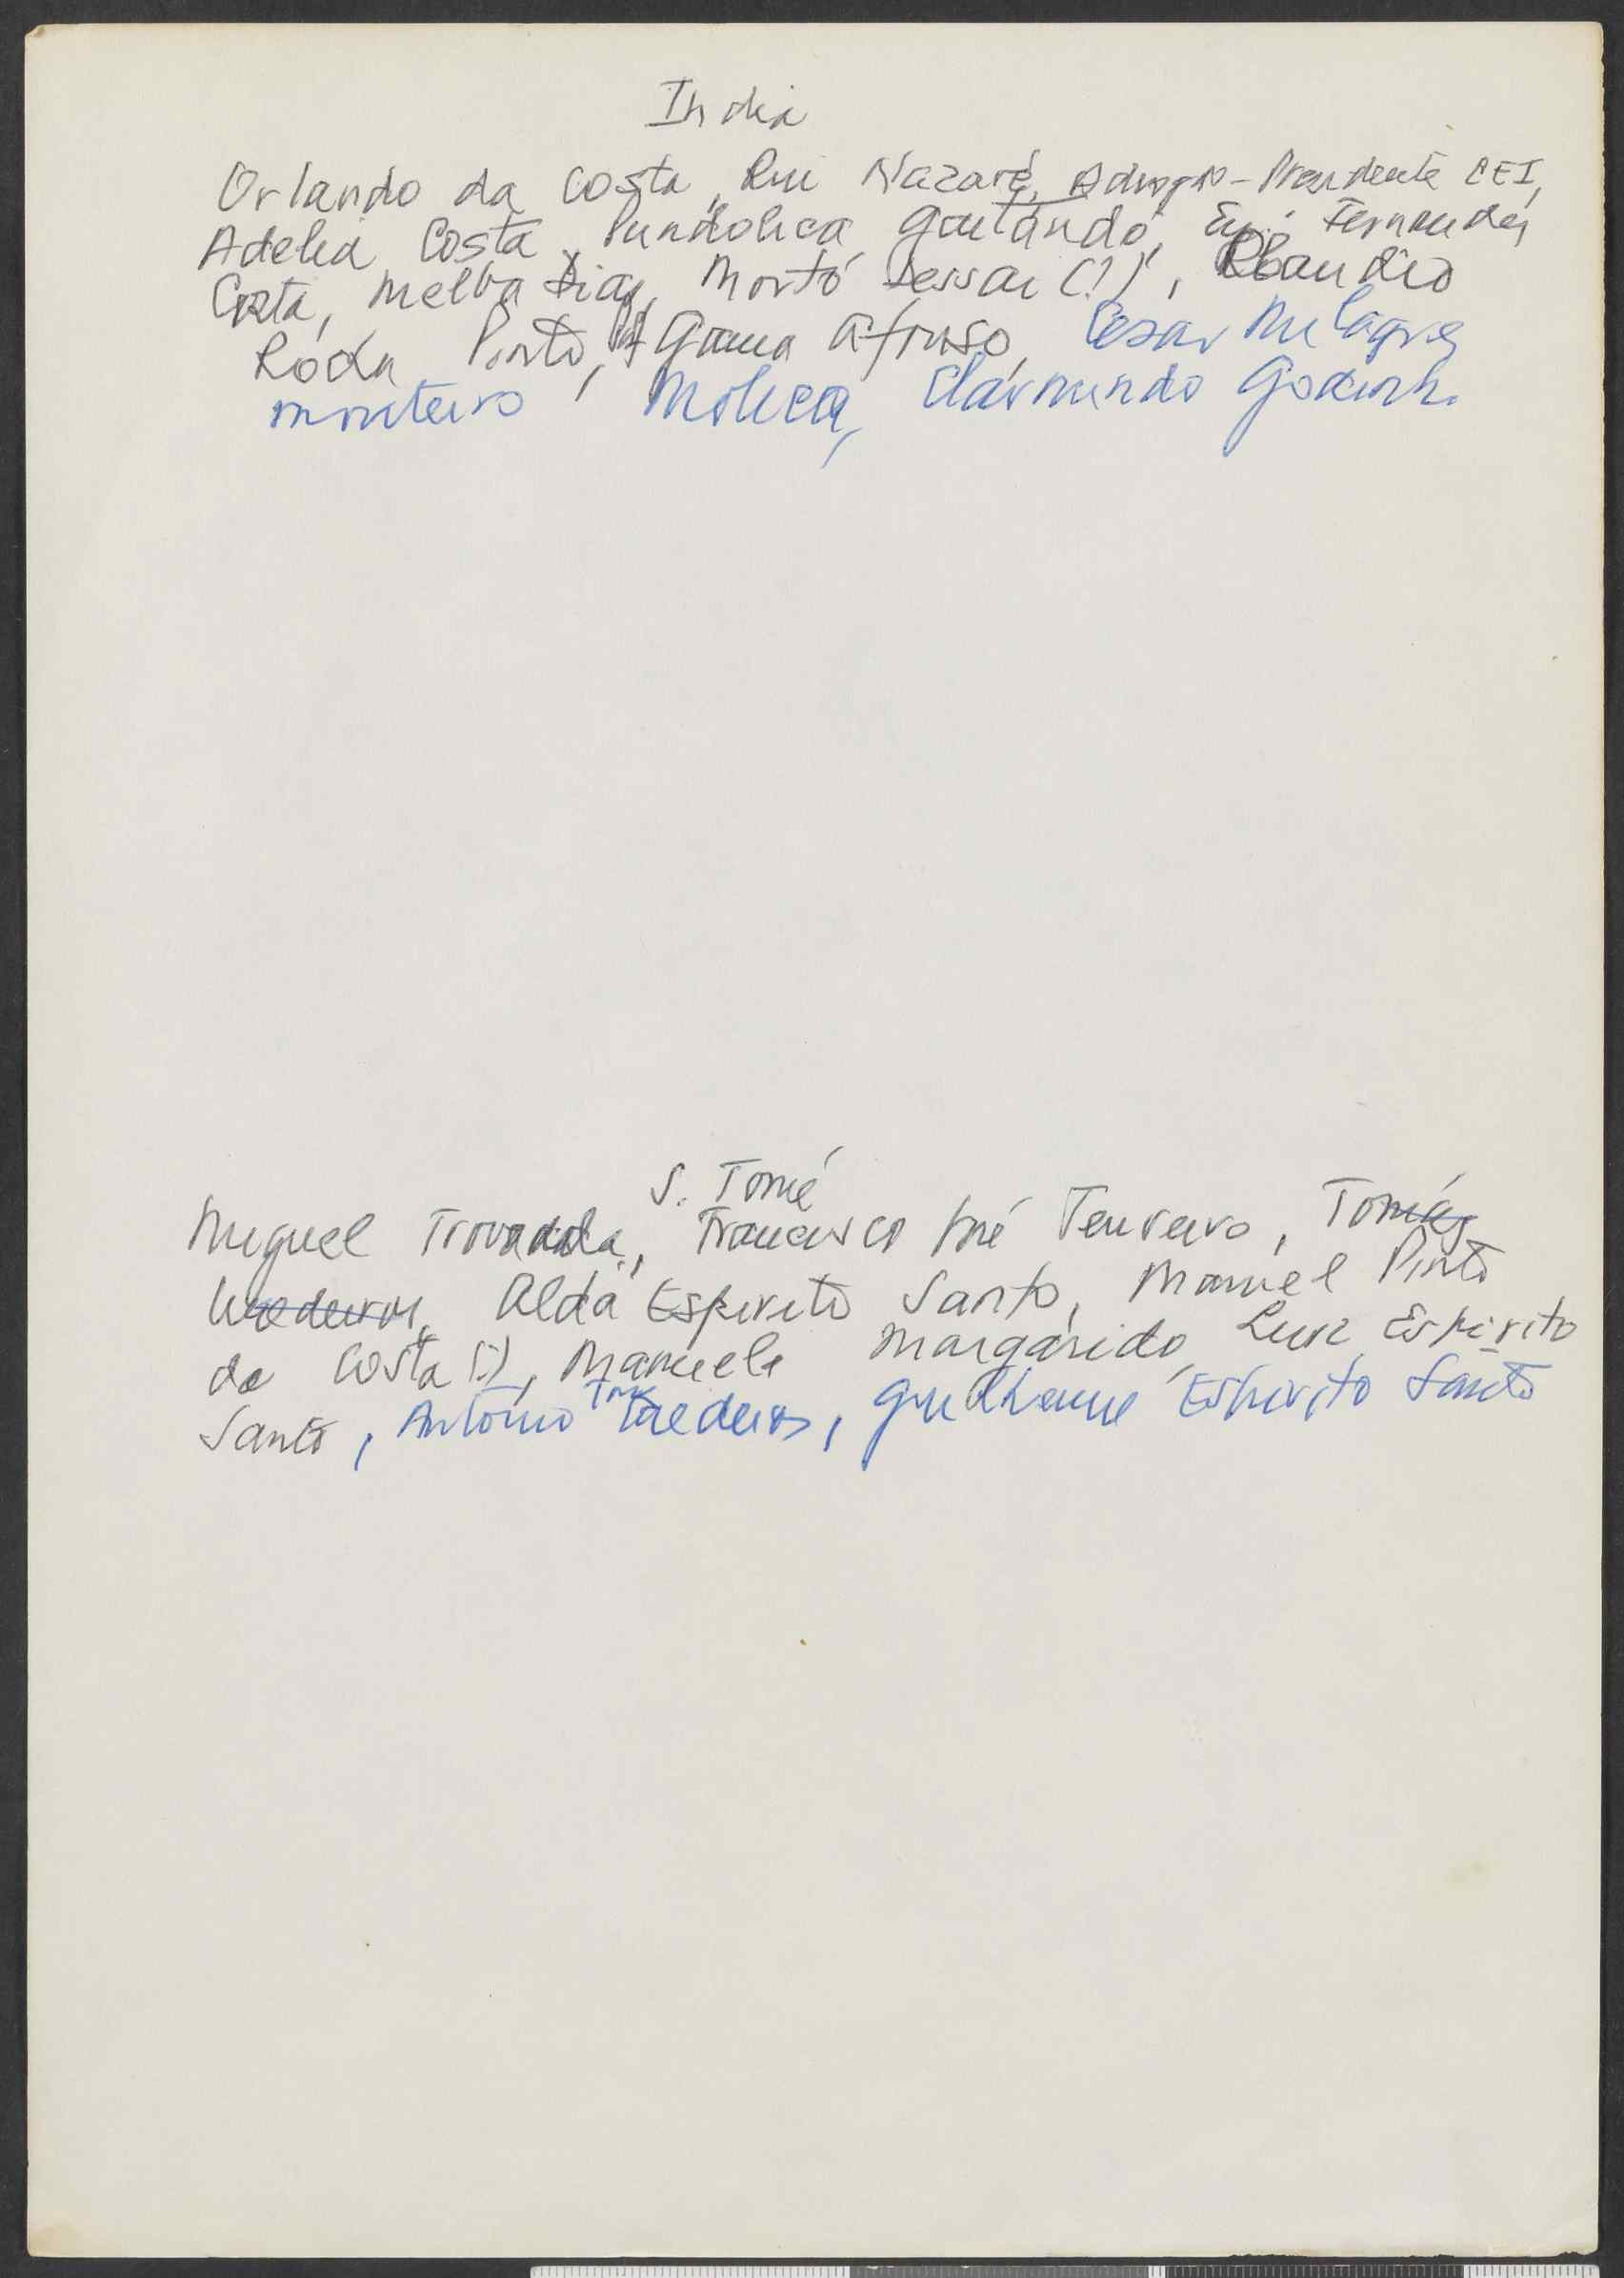 India
Orlando da Costa, Rui Nazaré, Advogado - Presidente CEI,
Adelia Costa, Pundolica Gaitandó, Fernandes
Costa, Melba Dias, Mortó Dessai (?), Claudio
Roda Pinto, Gama Afonso, Cesar Milagres
Monteiro, Molica, Clarmundo Godinho
S. Tomé
Miguel Trovoada, Francisco José Tenreiro, Tomás
Medeiros, Alda Espirito Santo, Manuel Pinto
da Costa (?), Manuela Margarido, Luis Espirito
Santo, António Tomás Medeiros, Guilherme Espirito Santo